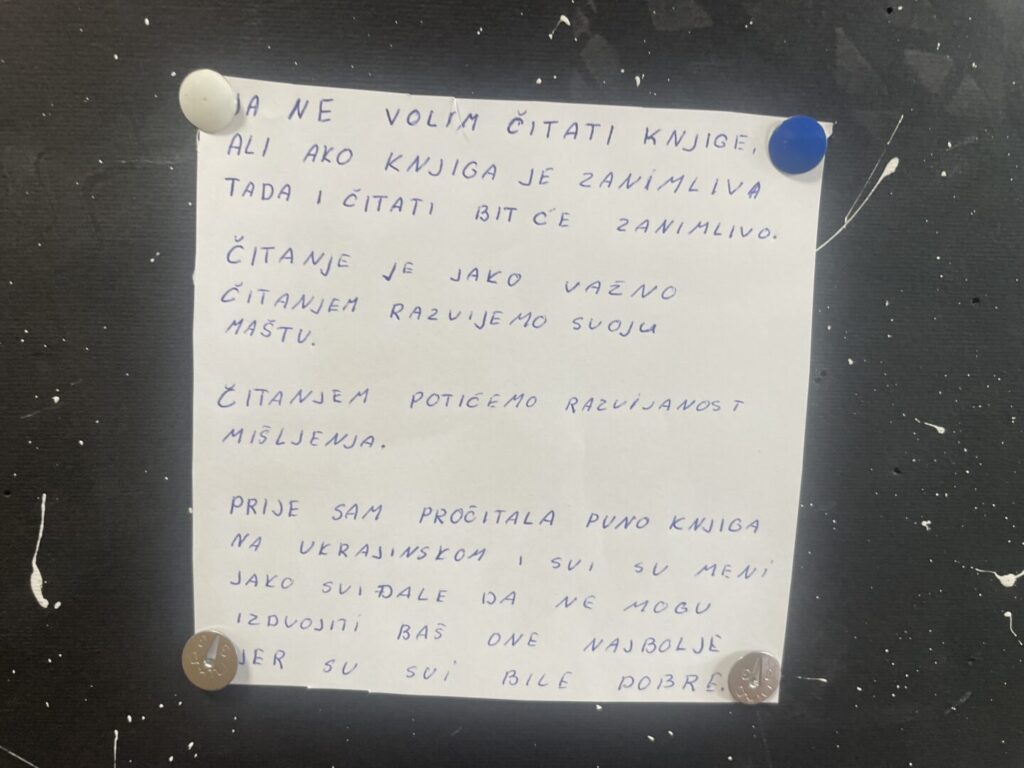 JA NE VOLIM ČITATI KNJIGE,
ALI AKO KNJIGA JE ZANIMLIVA
TADA I ČITATI BIT ĆE ZANIMLIVO.
ČITANJE JE JAKO VAŽNO
ČITANJEM RAZVIJEMO SVOJU
MAŠTU.
ČITANJEM POTIĆEMO RAZVIJANOST
MIŠLJENJA.
PRIJE SAM PROČITALA PUNO KNJIGA
NA UKRAJINSKOM I SVI SU MENI
JAKO SVIĐALE DA NE MOGU
IZDVOJITI BAŠ ONE NAJBOLJE
JER SU SVI BILE DOBRE.